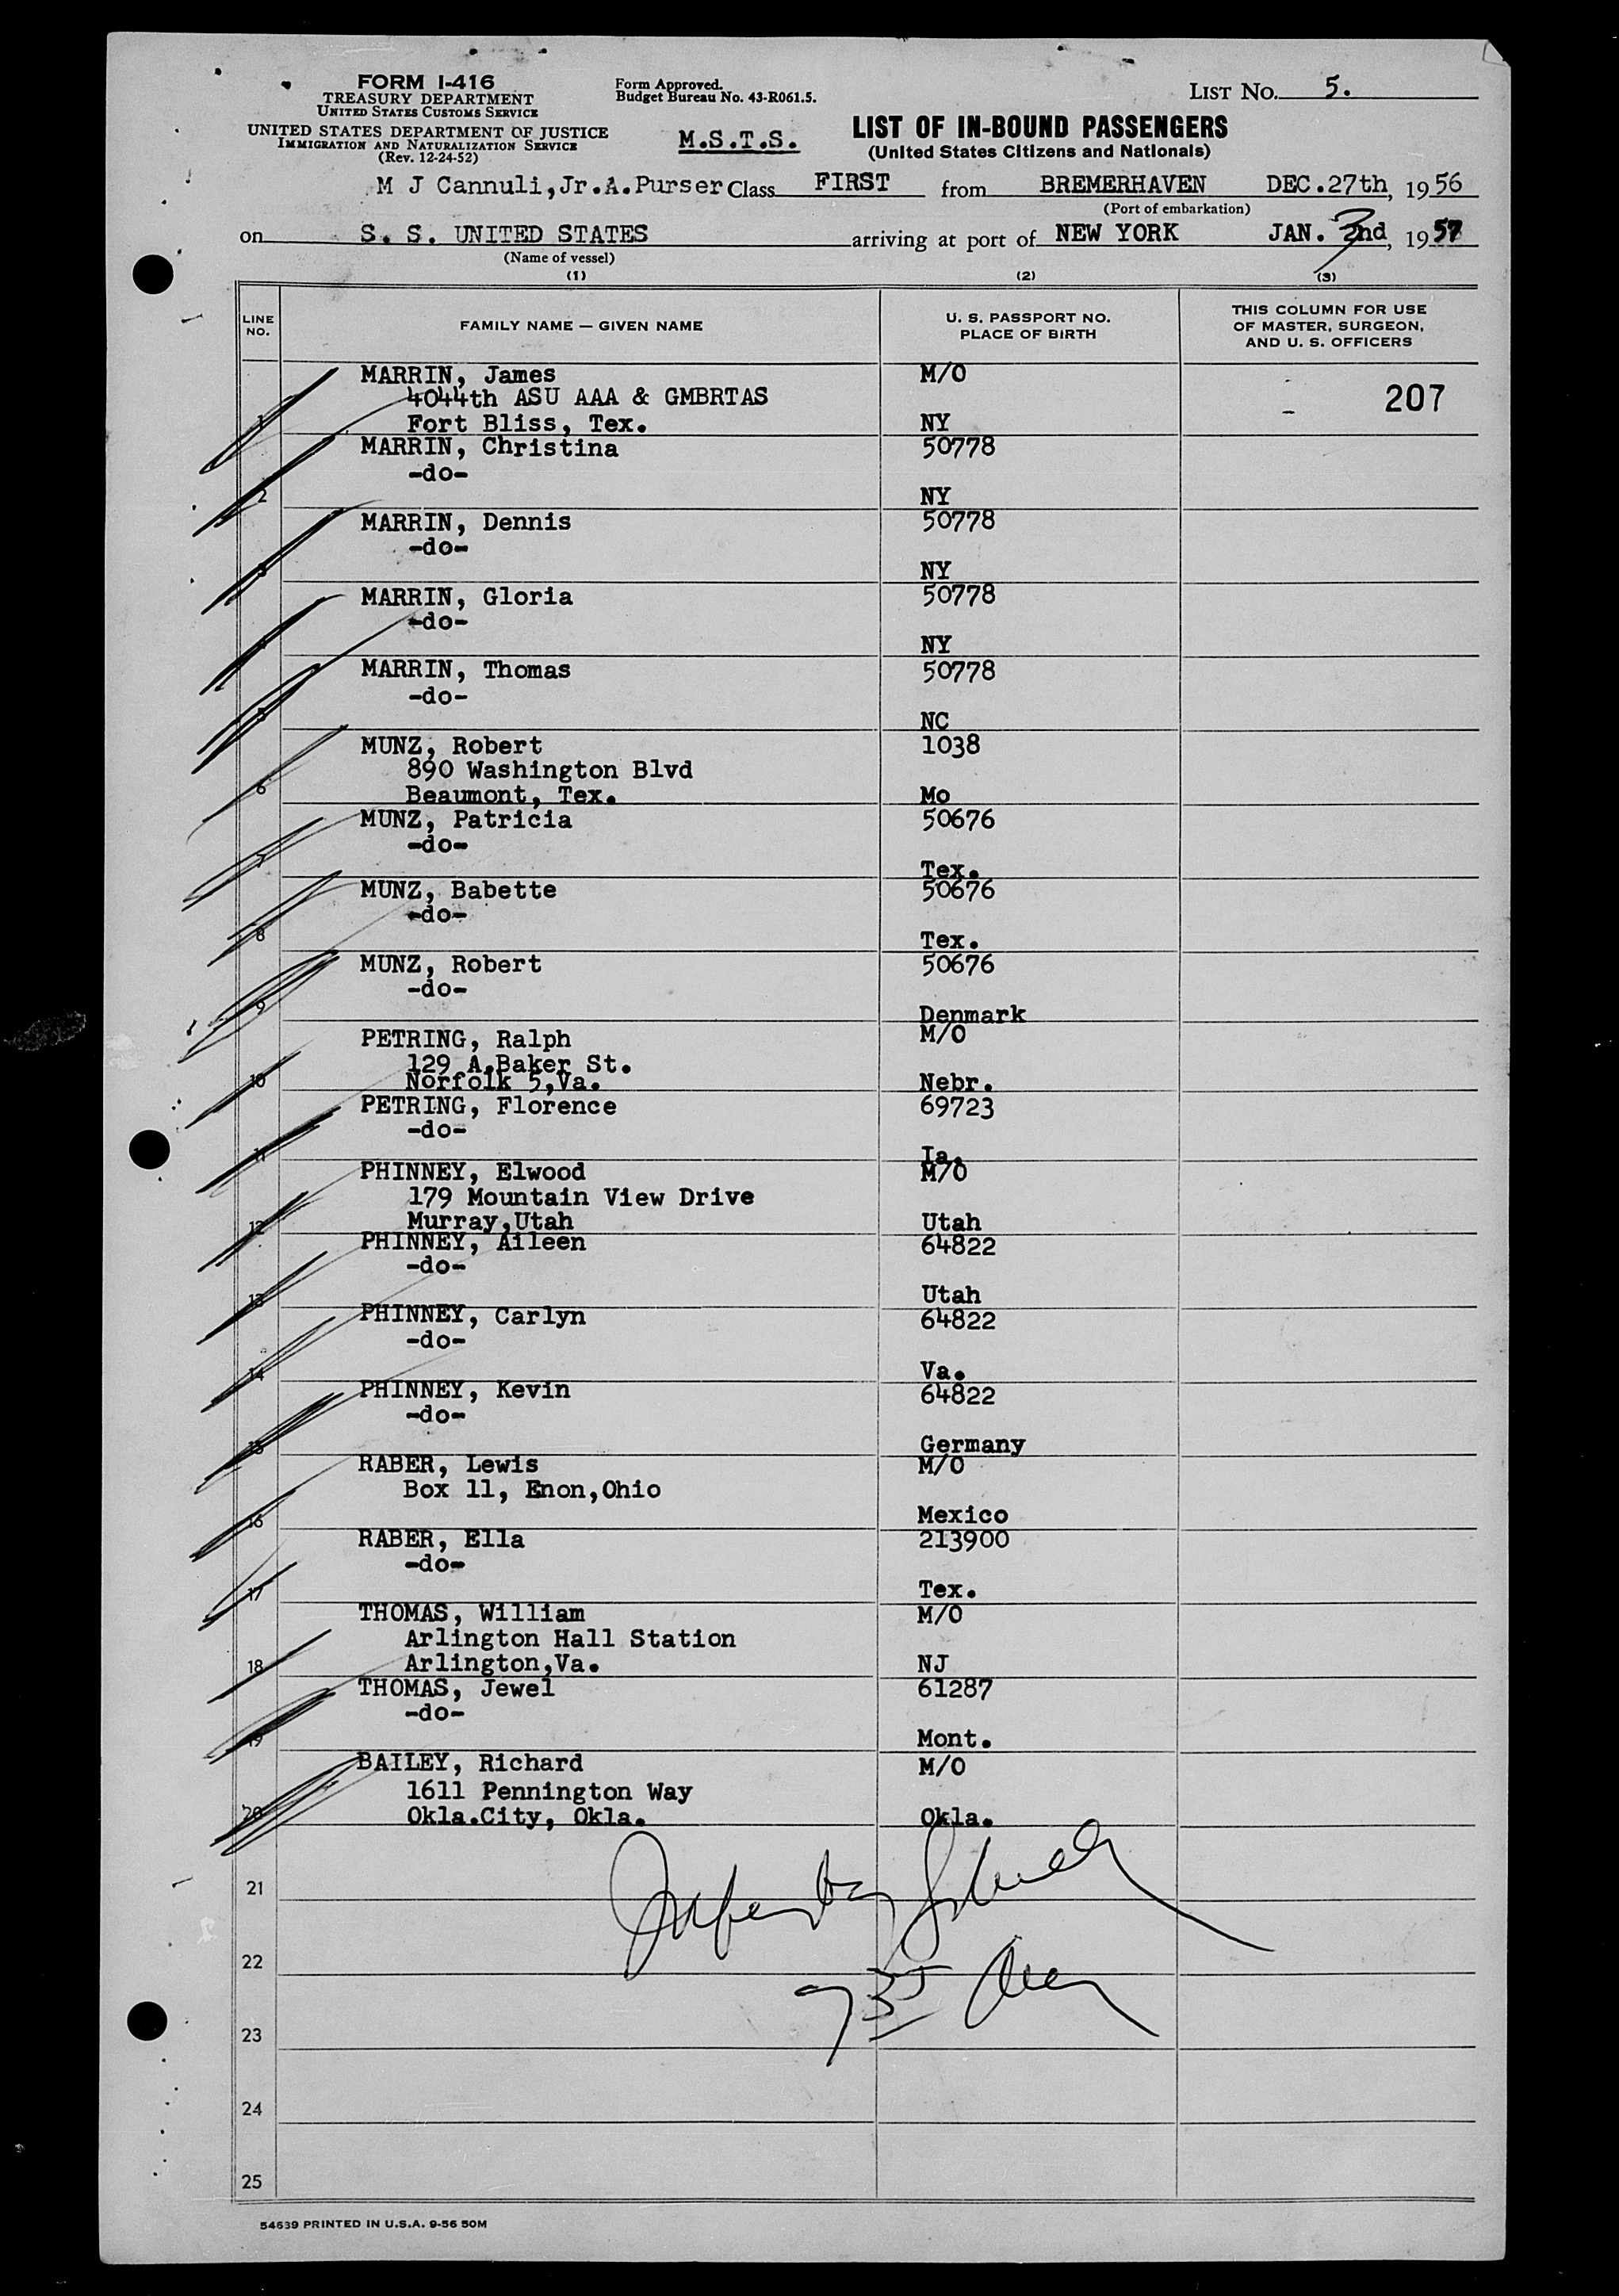 FORM I-416
TREASURY DEPARTMENT
UNITED STATES CUSTOMS SERVICE
UNITED STATES DEPARTMENT OF JUSTICE
IMMIGRATION AND NATURALIZATION SERVICE
(Rev. 12-24-52)
Form Approved.
Budget Bureau No. 43-R061.5.
M.S.T.S.
LIST No. 5.
LIST OF IN-BOUND PASSENGERS
(United States Citizens and Nationals)
M J Cannuli,Jr.A.Purser Class FIRST from BREMERHAVEN DEC.27th, 1956
(Port of embarkation)
on S. S. UNITED STATES arriving at port of NEW YORK JAN. 3nd, 1957
(Name of vessel)
(1) (2) (3)
LINE NO. FAMILY NAME — GIVEN NAME U. S. PASSPORT NO. PLACE OF BIRTH THIS COLUMN FOR USE OF MASTER, SURGEON, AND U. S. OFFICERS
MARRIN, James M/O
4044th ASU AAA & GMBRTAS 207
1 Fort Bliss, Tex. NY
MARRIN, Christina 50778
-do-
2 NY
MARRIN, Dennis 50778
-do-
3 NY
MARRIN, Gloria 50778
-do-
4 NY
MARRIN, Thomas 50778
-do-
5 NC
MUNZ, Robert 1038
890 Washington Blvd
6 Beaumont, Tex. Mo
MUNZ, Patricia 50676
-do-
7 Tex.
MUNZ, Babette 50676
-do-
8 Tex.
MUNZ, Robert 50676
-do-
9 Denmark
PETRING, Ralph M/O
129 A.Baker St.
10 Norfolk 5,Va. Nebr.
PETRING, Florence 69723
-do-
11 Ia.
PHINNEY, Elwood M/O
179 Mountain View Drive
12 Murray,Utah Utah
PHINNEY, Aileen 64822
-do-
13 Utah
PHINNEY, Carlyn 64822
-do-
14 Va.
PHINNEY, Kevin 64822
-do-
15 Germany
RABER, Lewis M/O
Box 11, Enon,Ohio
16 Mexico
RABER, Ella 213900
-do-
17 Tex.
THOMAS, William M/O
Arlington Hall Station
18 Arlington,Va. NJ
THOMAS, Jewel 61287
-do-
19 Mont.
BAILEY, Richard M/O
1611 Pennington Way
20 Okla.City, Okla. Okla.
21
22
735
23
24
25
54639 PRINTED IN U.S.A. 9-56 50M